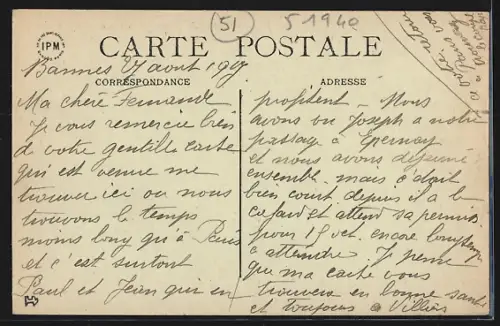 51
51940
IPM
CARTE POSTALE
CORRESPONDANCE
ADRESSE
Bannes 27 aout 1917
Ma chère Fernande
Je vous remercie bien
de votre gentille carte
qui est venue me
trouver ici ou nous
trouvons le temps
moins long qu'à Paris
et c'est surtout
Paul et Jean qui en
profitent - Nous
avons vu Joseph a notre
passage à Epernay
et nous avons déjeuné
ensemble mais c'était
bien court depuis il a le
cafard et attend sa permis
pour 15 oct. encore longtemps
a attendre. Je pense
que ma carte vous
trouvera en bonne santé
et toujours a Villiers
retour